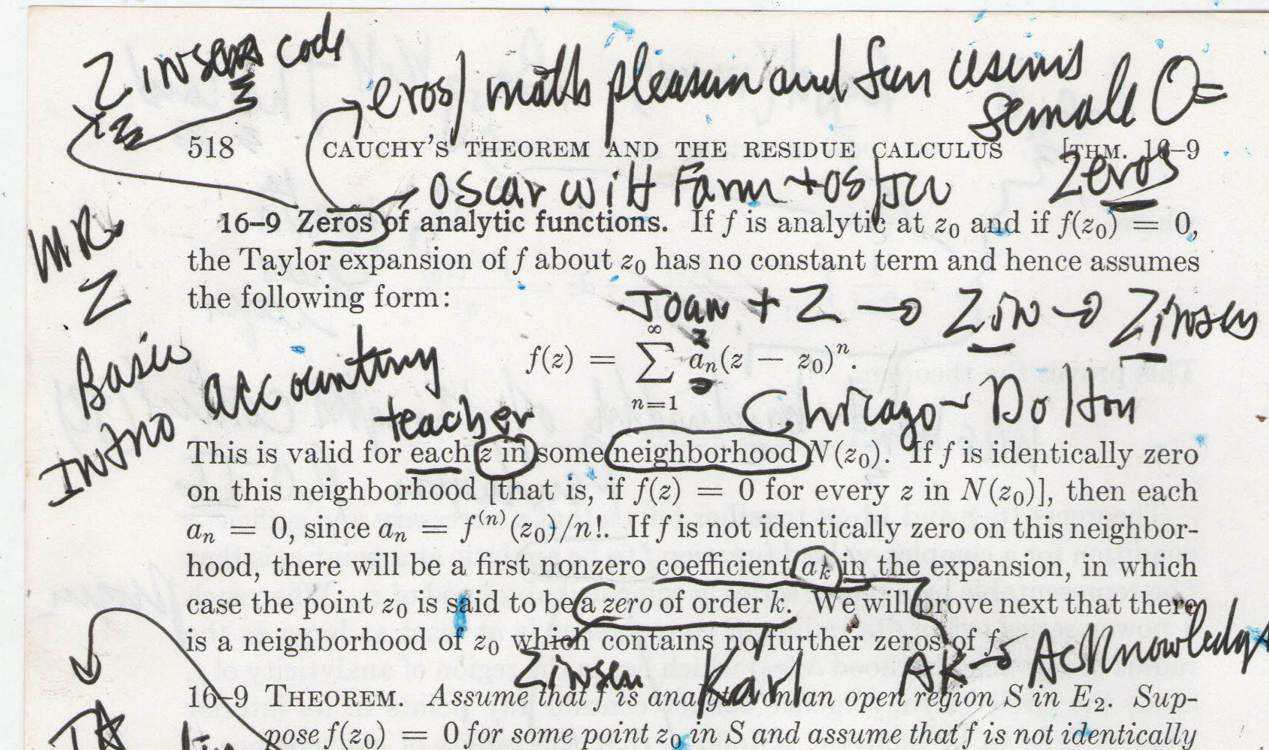 Zinsers code
eros/ math pleasure and fun
female O=
518 CAUCHY'S THEOREM AND THE RESIDUE CALCULUS [THM. 16–9
oscar with Farm + os
zeros
16–9 Zeros of analytic functions. If f is analytic at z₀ and if f(z₀) = 0,
the Taylor expansion of f about z₀ has no constant term and hence assumes
the following form:
MR.
Z
Basic
Intro accounting
teacher
Joan + Z → Zin → Zinsen
f(z) = ∑_{n=1}^{∞} aₙ(z − z₀)ⁿ.
Chicago - Dolton
This is valid for each z in some neighborhood N(z₀). If f is identically zero
on this neighborhood [that is, if f(z) = 0 for every z in N(z₀)], then each
aₙ = 0, since aₙ = f⁽ⁿ⁾(z₀)/n!. If f is not identically zero on this neighbor-
hood, there will be a first nonzero coefficient aₖ in the expansion, in which
case the point z₀ is said to be a zero of order k. We will prove next that there
is a neighborhood of z₀ which contains no further zeros of f.
Zinsen Karl AK → Acknowledg
16–9 THEOREM. Assume that f is analytic on an open region S in E₂. Sup-
pose f(z₀) = 0 for some point z₀ in S and assume that f is not identically